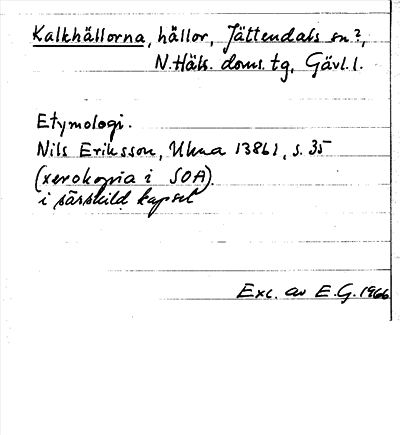 Kalkhällorna, hällor, Jättendals sn?,
N. Häls. doms. tg, Gävl. l.
Etymologi.
Nils Eriksson, Ukna 13861, s. 35
(xerokopia i SOA).
i särskild kapsel
Exc. av E.G. 1966